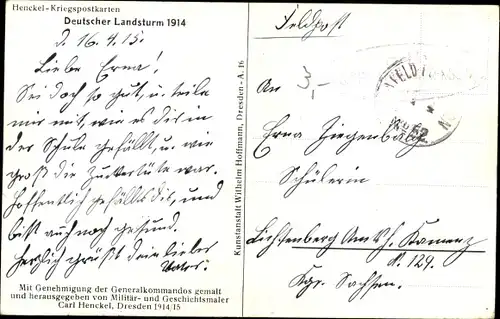 Henckel-Kriegspostkarten
Deutscher Landsturm 1914
D. 16.4.15.
Liebe Erna!
Sei doch so gut, u. teile
mir mit, wie es dir in
der Schule gefällt, u. wie
groß die Zuckertüte war.
Hoffentlich gefällts dir, und
bist auch noch gesund.
Herzlich grüßt dein lieber
Vater.
Mit Genehmigung der Generalkommandos gemalt
und herausgegeben von Militär- und Geschichtsmaler
Carl Henckel, Dresden 1914/15
Kunstanstalt Wilhelm Hoffmann, Dresden-A. 16
Feldpost
An
Erna Ziegenbalg
Schülerin
Lichtenberg Am'Hf. Kamenz
N. 129.
Kgr. Sachsen.